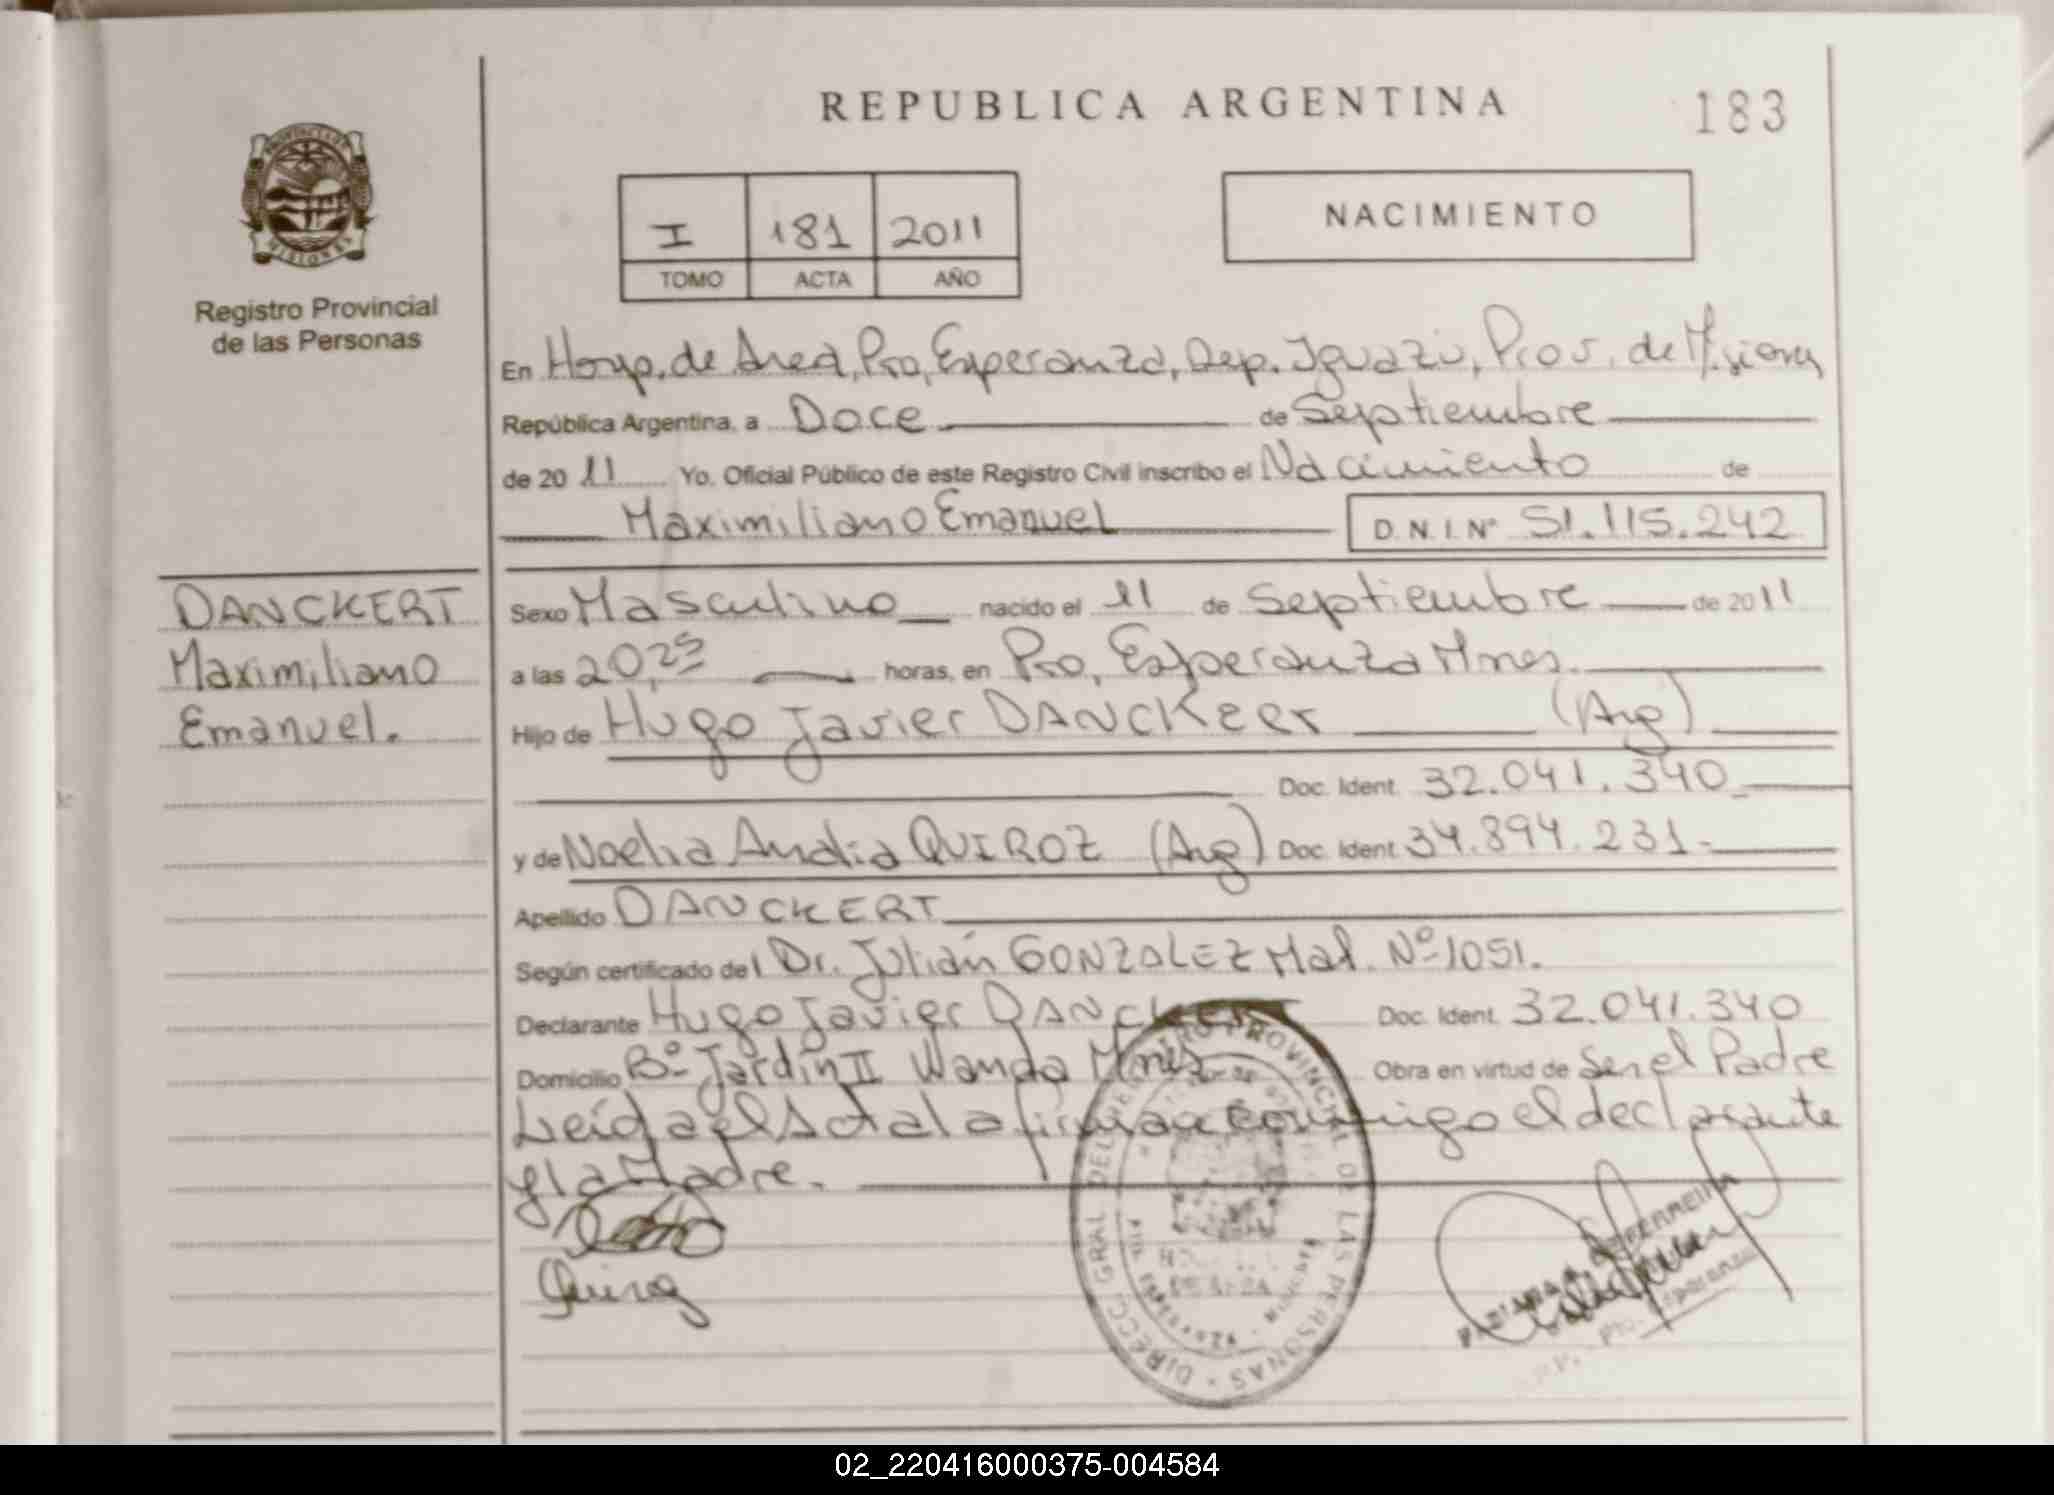 REPUBLICA ARGENTINA
183
I 181 2011
TOMO ACTA AÑO
NACIMIENTO
Registro Provincial
de las Personas
En Hosp. de Area, Pto, Esperanza, Dep. Iguazú, Prov. de Misiones
República Argentina, a Doce de Septiembre
de 2011 Yo. Oficial Público de este Registro Civil inscribo el Nacimiento de
Maximiliano Emanuel D.N.I.Nº 51.115.242
DANCKERT
Maximiliano
Emanuel.
Sexo Masculino nacido el 11 de Septiembre de 2011
a las 20,25 horas, en Pto, Esperanza Mnes.
Hijo de Hugo Javier DANCKERT (Arg)
Doc. Ident. 32.041.340
y de Noelia Analia QUIROZ (Arg) Doc. Ident. 34.894.231.-
Apellido DANCKERT
Según certificado del Dr. Julián GONZALEZ Mat. Nº 1051.
Declarante Hugo Javier DANCKERT Doc. Ident. 32.041.340
Domicilio Bº Jardín II Wanda Mnes Obra en virtud de Ser el Padre
Leída el Acta la firman conmigo el declarante
y la Madre.
Quiroz
DIRECC. GRAL. DEL REGISTRO PROVINCIAL DE LAS PERSONAS
FERREIRA
Pto. Esperanza
02_220416000375-004584